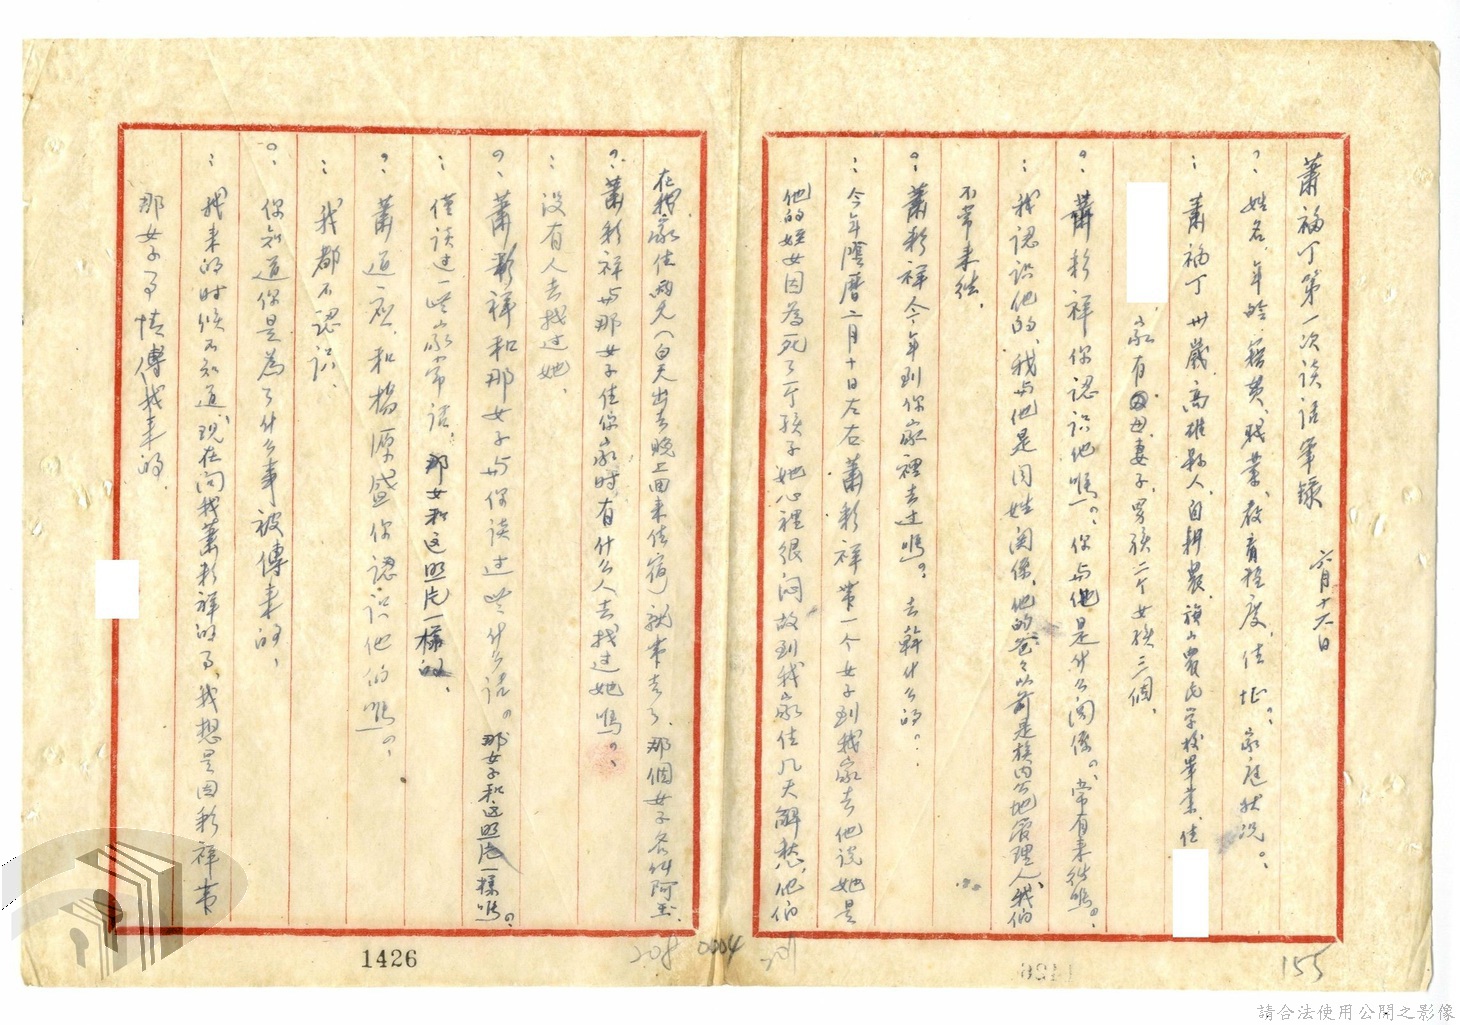 蕭福丁第一次談話筆錄
六月十六日
?姓名、年岭、籍貫、職業、教育程度、住址?家庭狀況?:
: 蕭福丁 卅歲高雄縣人、自耕農、旗山農民学校畢業、住
、家有母妻子、男孩二个女孩三個、
?蕭彩祥你認识他嗎?:你与他是什么関係?常有来往嗎?
: 我認识他的、我与他是同姓関係、他的爸々以前是族内公地管理人、我们
不常来往、
?: 蕭彩祥今年到你家裡去过嗎?:去幹什么的?:
: 今年陰曆二月十日左右蕭彩祥帶一个女子到我家去他说她是
他的姪女因為死了个孩子她心裡很闷故到我家住几天解愁、他们
在我家住兩天(白天出去晚上回来住宿)就帶去了、那個女子名叫阿玉.
?: 蕭彩祥与那女子住你家时、有什么人去找过她嗎?、
: 没有人去找过她、
?、蕭彩祥和那女子与你谈过些什么话?那女子和这照片一樣嗎?
: 僅谈过一些家常话、那女和这照片一樣的、
?、蕭道应、和楊源盛你認识他们嗎?、
: 我都不認识、
?: 你知道你是為了什么事被傳来的、
: 我来的时候不知道、现在问我蕭彩祥的事、我想是因彩祥帶
那女子事情傳我来的、
1426
208
0004
207
155
請合法使用公開之影像